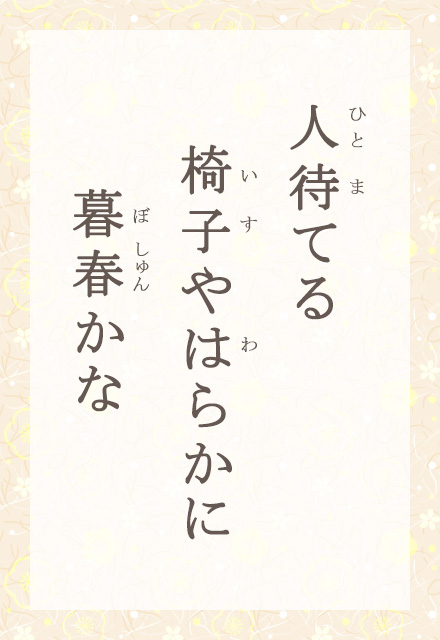 人待てる
ひとま
椅子やはらかに
いすわ
暮春かな
ぼしゅん